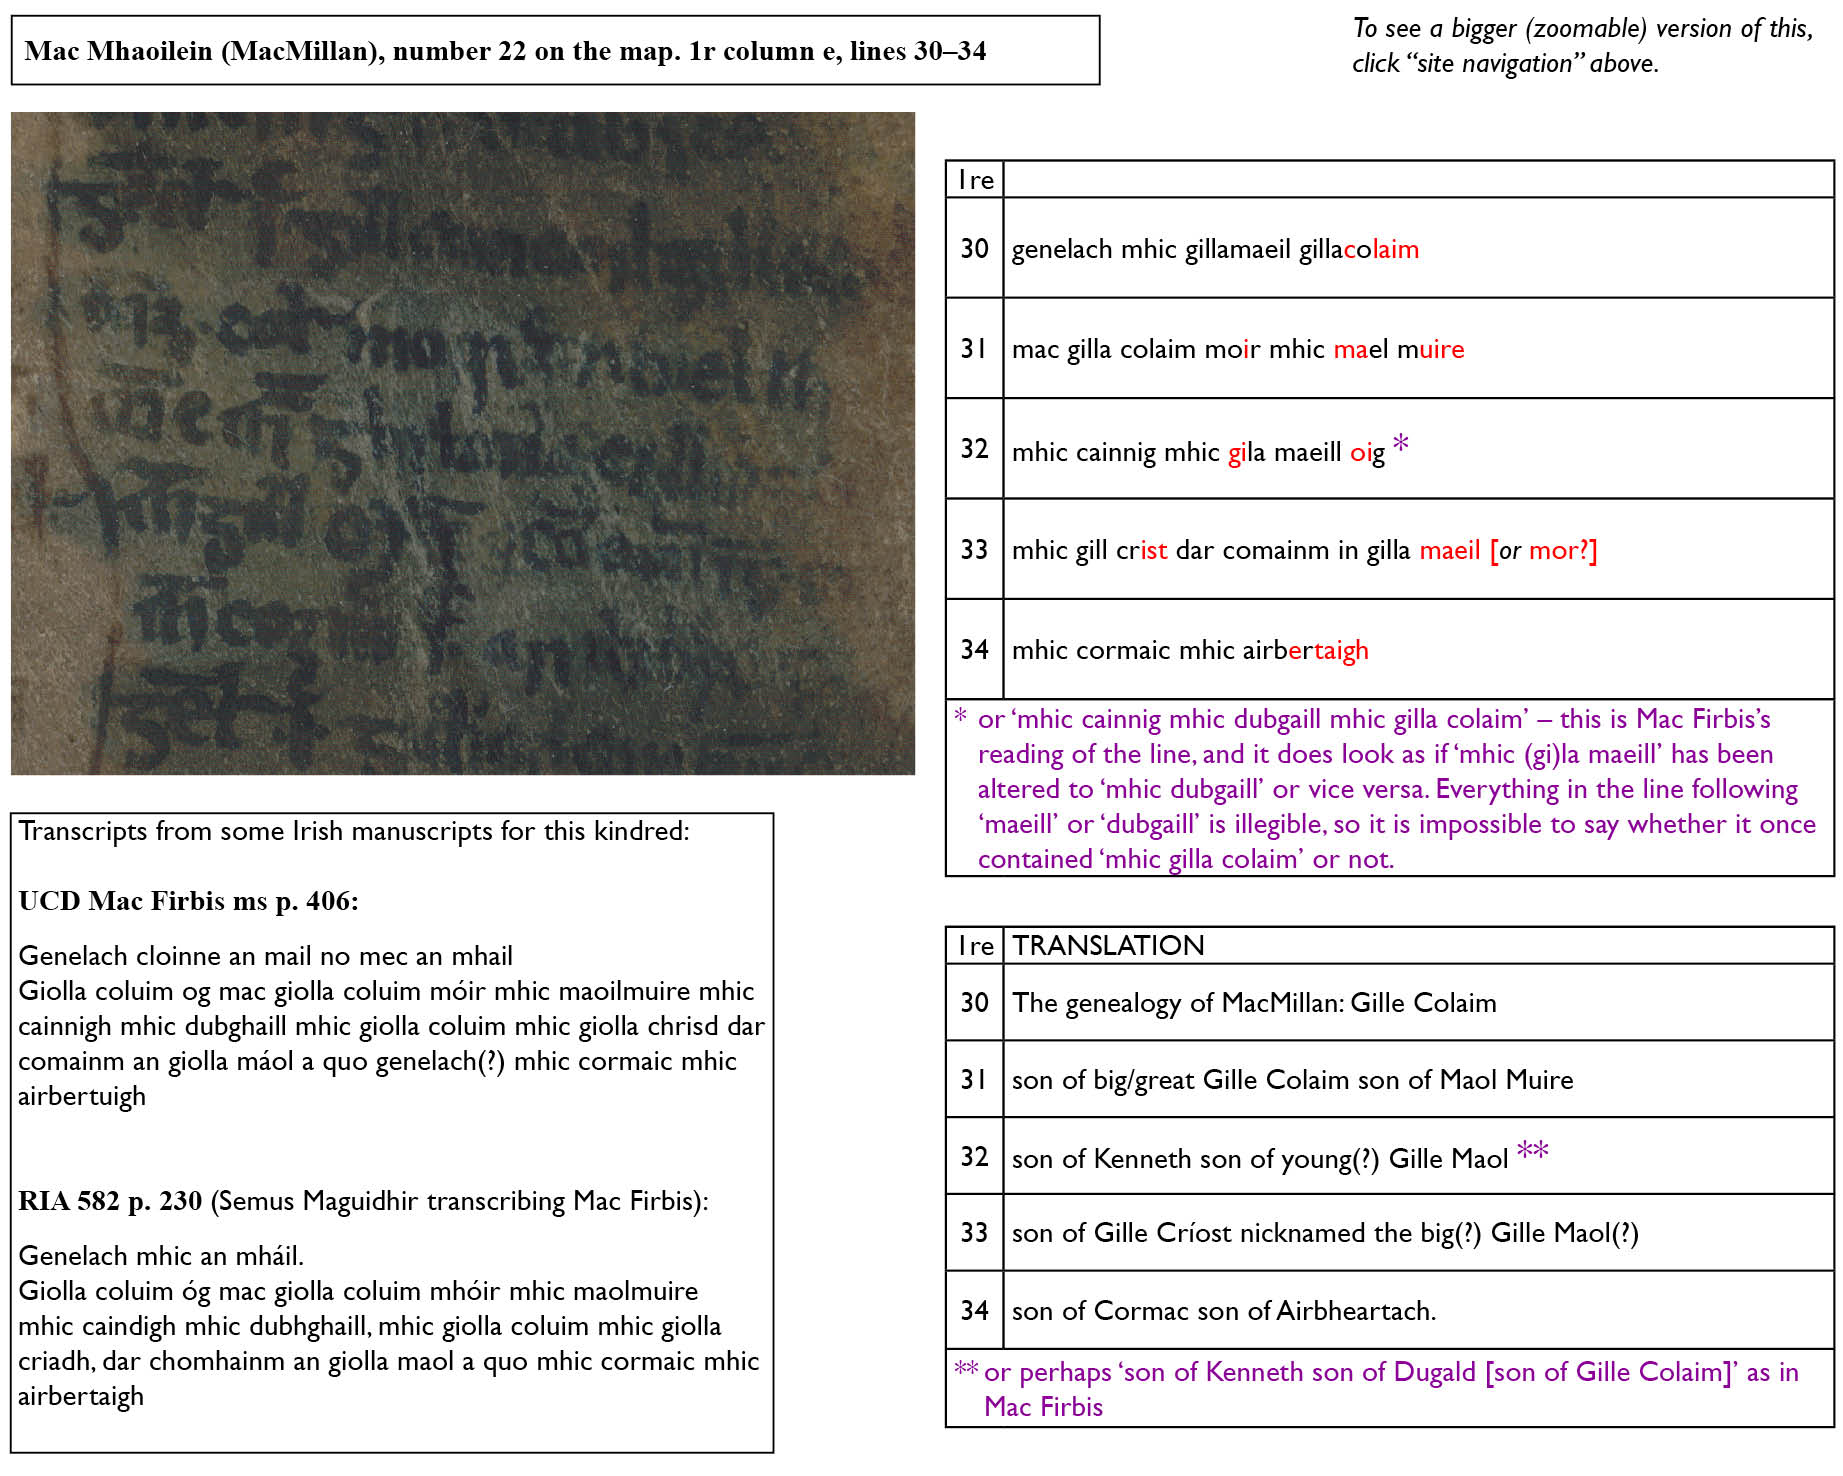 Mac Mhaoilein (MacMillan), number 22 on the map. 1r column e, lines 30–34
To see a bigger (zoomable) version of this,
click “site navigation” above.
1re
30 genelach mhic gillamaeil gillacolaim
31 mac gilla colaim moir mhic mael muire
32 mhic cainnig mhic gila maeill oig *
33 mhic gill crist dar comainm in gilla maeil [or mor?]
34 mhic cormaic mhic airbertaigh
* or ‘mhic cainnig mhic dubgaill mhic gilla colaim’ – this is Mac Firbis’s
reading of the line, and it does look as if ‘mhic (gi)la maeill’ has been
altered to ‘mhic dubgaill’ or vice versa. Everything in the line following
‘maeill’ or ‘dubgaill’ is illegible, so it is impossible to say whether it once
contained ‘mhic gilla colaim’ or not.
Transcripts from some Irish manuscripts for this kindred:
UCD Mac Firbis ms p. 406:
Genelach cloinne an mail no mec an mhail
Giolla coluim og mac giolla coluim móir mhic maoilmuire mhic
cainnigh mhic dubghaill mhic giolla coluim mhic giolla chrisd dar
comainm an giolla máol a quo genelach(?) mhic cormaic mhic
airbertuigh
RIA 582 p. 230 (Semus Maguidhir transcribing Mac Firbis):
Genelach mhic an mháil.
Giolla coluim óg mac giolla coluim mhóir mhic maolmuire
mhic caindigh mhic dubhghaill, mhic giolla coluim mhic giolla
criadh, dar chomhainm an giolla maol a quo mhic cormaic mhic
airbertaigh
1re TRANSLATION
30 The genealogy of MacMillan: Gille Colaim
31 son of big/great Gille Colaim son of Maol Muire
32 son of Kenneth son of young(?) Gille Maol **
33 son of Gille Críost nicknamed the big(?) Gille Maol(?)
34 son of Cormac son of Airbheartach.
** or perhaps ‘son of Kenneth son of Dugald [son of Gille Colaim]’ as in
Mac Firbis